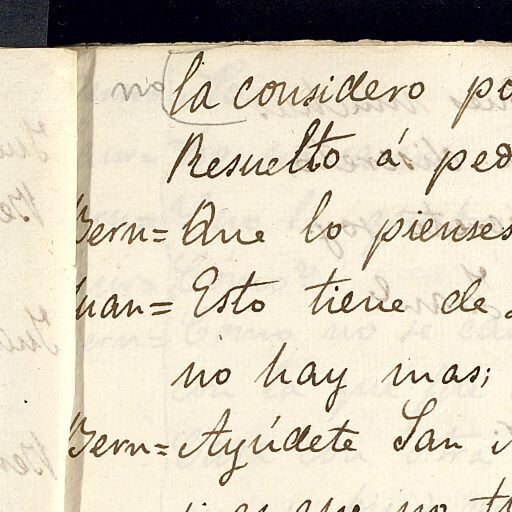 la considero po
Resuelto á ped
Bern= Que lo pienses
Juan= Esto tiene de
no hay mas;
Bern= Ayúdete San